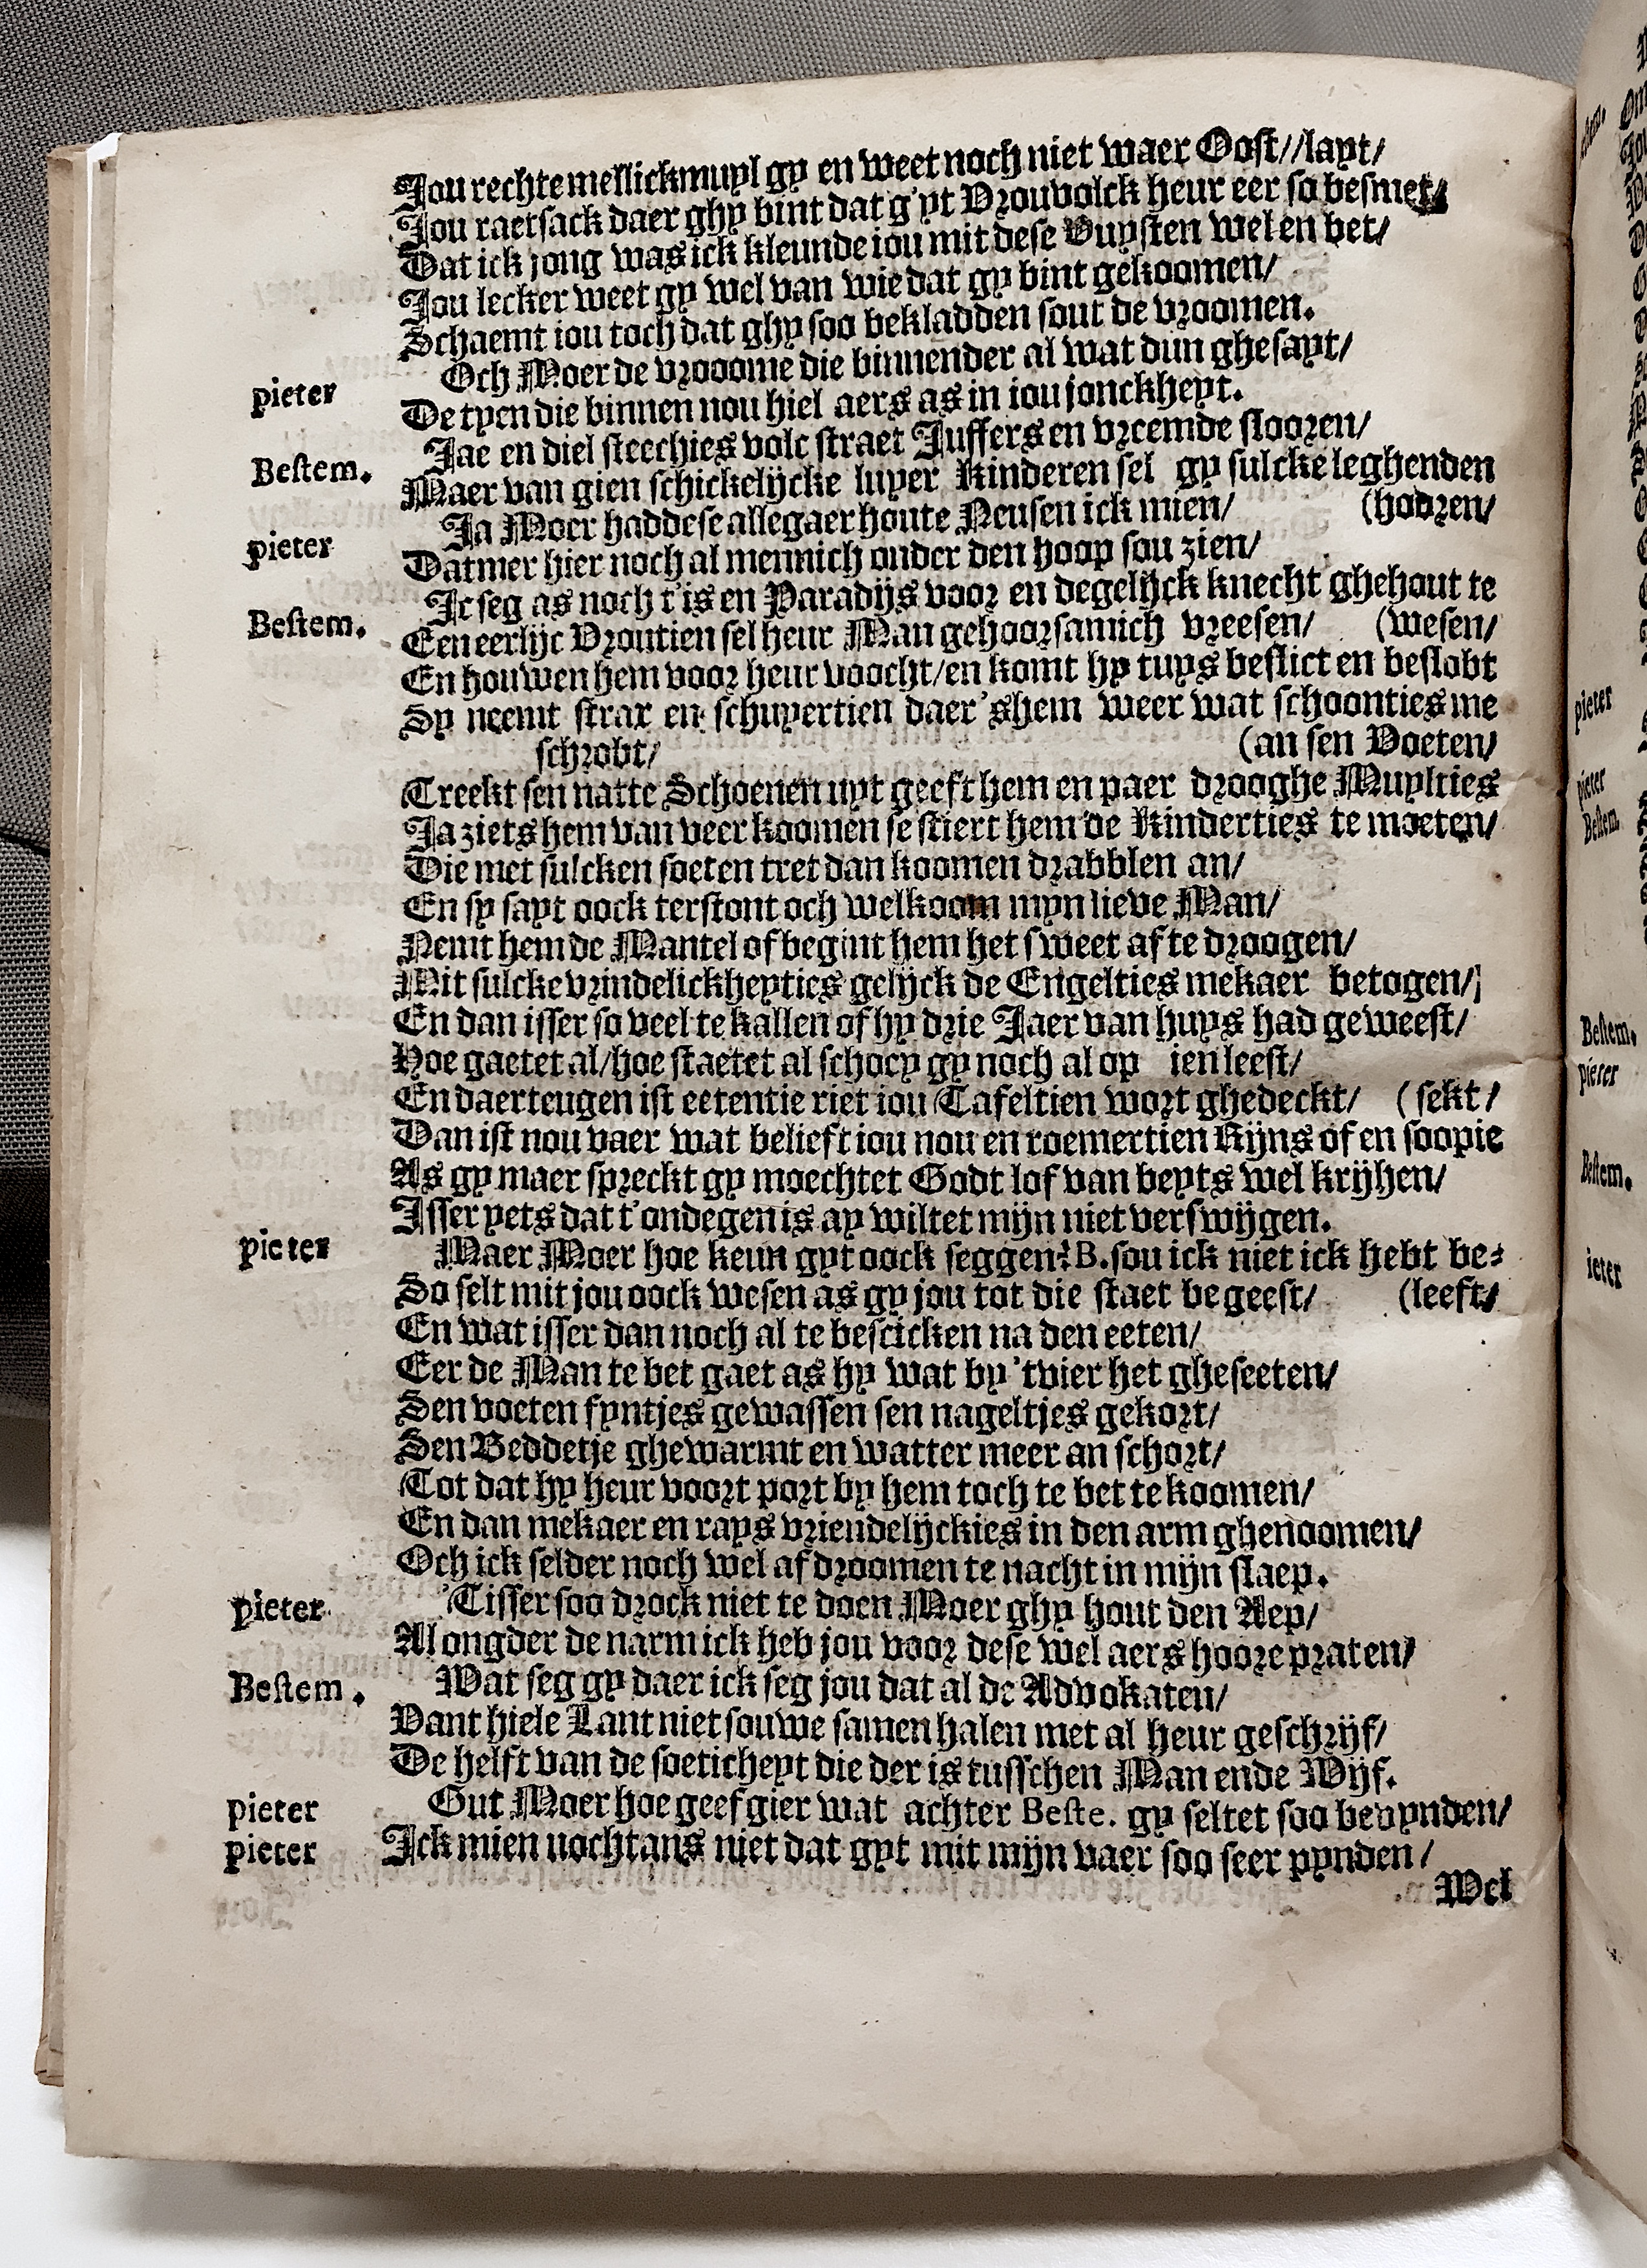 Jou rechte mellickmuyl gy en weet noch niet waer Oost//layt/
Jou raetsack daer ghy bint dat g'yt Vrouvolck heur eer so besmet/
Dat ick jong was ick kleunde iou mit dese Vuysten wel en bet/
Jou lecker weet gy wel van wie dat gy bint gekoomen/
Schaemt iou toch dat ghy soo bekladden sout de vroomen.
pieter Och Moer de vrooome die binnender al wat dun ghesayt/
De tyen die binnen nou hiel aers as in iou jonckheyt.
Bestem. Jae en diel steechies volc straet Juffers en vreemde slooren/
Maer van gien schickelijcke luyer Kinderen sel gy sulcke leghenden
(hooren/
pieter Ja Moer hadde se allegaer houte Neusen ick mien/
Datmer hier noch al mennich onder den hoop sou zien/
Bestem. Ic seg as noch t'is en Paradijs voor en degelijck knecht ghehout te
Een eerlijc Vroutien sel heur Man gehoorsamich vreesen/ (wesen/
En houwen hem voor heur voocht/en komt hy tuys beslict en beslobt
Sy neemt strax en schuyertien daer'shem weer wat schoonties me
schrobt/ (an sen Voeten/
Treekt sen natte Schoenen uyt geeft hem en paer drooghe Muylties
Ja ziets hem van veer koomen se stiert hem de Kinderties te moeten/
Die met sulcken soeten tret dan koomen drabblen an/
En sy sayt oock terstont och welkoom myn lieve Man/
Nemt hem de Mantel of begint hem het sweet af te droogen/
Mit sulcke vrindelickheyties gelijck de Engelties mekaer betogen/
En dan isser so veel te kallen of hy drie Jaer van huys had geweest/
Hoe gaetet al/hoe staetet al schocy gy noch al op ien leest/
En daerteugen ist eetentie riet iou Tafeltien wort ghedeckt/ (sekt/
Dan ist nou vaer wat belieft iou nou en roemertien Rijns of en soopie
As gy maer spreckt gy moechtet Godt lof van beyts wel krijhen/
Isser yets dat t'ondegen is ay wiltet mijn niet verswijgen.
pieter Maer Moer hoe keun gyt oock seggen? B. sou ick niet ick hebt be-
So selt mit jou oock wesen as gy jou tot die staet begeest/ (leeft/
En wat isser dan noch al te bescicken na den eeten/
Eer de Man te bet gaet as hy wat by 'tvier het gheseeten/
Sen voeten fyntjes gewassen sen nageltjes gekort/
Sen Beddetje ghewarmt en watter meer an schort/
Tot dat hy heur voort port by hem toch te bet te koomen/
En dan mekaer en rays vriendelijckies in den arm ghenoomen/
Och ick selder noch wel af droomen te nacht in mijn slaep.
pieter 'Tisser soo drock niet te doen Moer ghy hout den Aep/
Al ongder de narm ick heb jou voor dese wel aers hoore praten/
Bestem. Wat seg gy daer ick seg jou dat al de Advokaten/
Vant hiele Lant niet souwe samen halen met al heur geschrijf/
De helft van de soeticheyt die der is tusschen Man ende Wijf.
pieter Gut Moer hoe geef gier wat achter Beste. gy seltet soo bevynden/
pieter Ick mien nochtans niet dat gyt mit mijn vaer soo seer pynden/
Wel